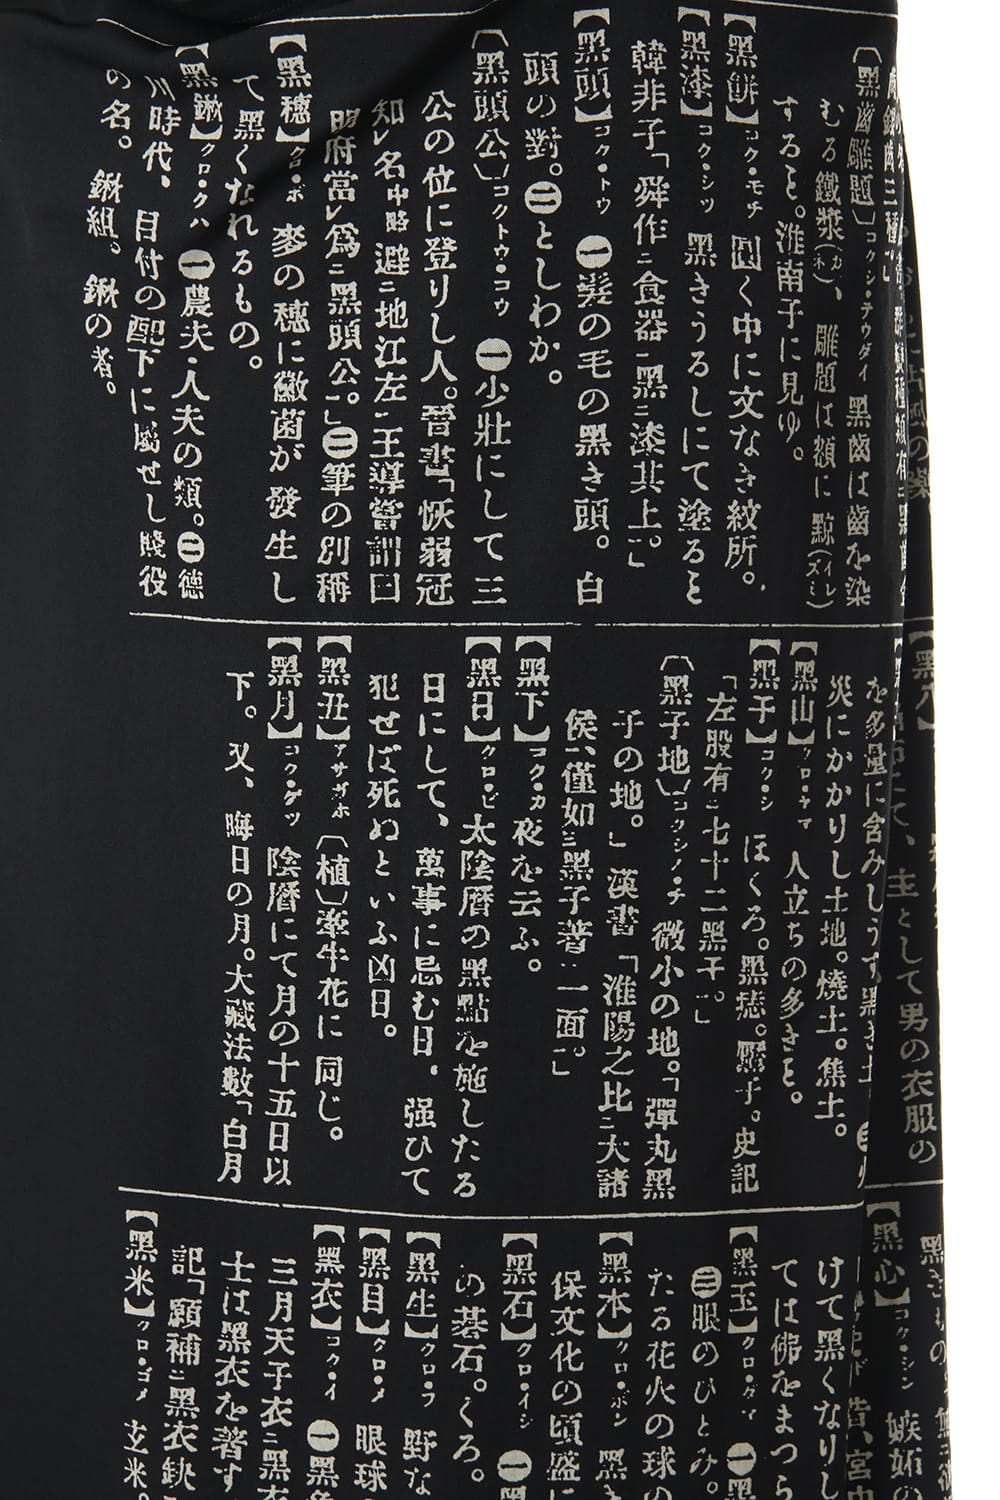 【黑齒雕題】コクシ・テウダイ 黑齒は齒を染
むる鐵漿(カネ)、雕題は額に黥(イレズミ)
すると。淮南子に見ゆ。
【黑餠】コク・モチ 圓く中に文なき紋所。
【黑漆】コク・シツ 黑きうるしにて塗ると
韓非子「舜作ニ食器ニ黑ニ漆其上ニ」
【黑頭】コク・トウ ㊀髮の毛の黑き頭。白
頭の對。㊁としわか。
〔黑頭公〕コクトウ・コウ ㊀少壯にして三
公の位に登りし人。晉書「恢弱冠
知レ名中略避ニ地江左ニ王導嘗謂曰
明府當レ爲ニ黑頭公ニ」㊁筆の別稱
【黑穗】クロ・ボ 麥の穗に黴菌が發生し
て黑くなれるもの。
【黑鍬】クロ・クハ ㊀農夫・人夫の類。㊁德
川時代、目付の配下に屬せし賤役
の名。鍬組。鍬の者。
【黑穴】
を多量に含みしうす黑き土
災にかかりし土地。燒土。焦土。
【黑山】クロ・ヤマ 人立ちの多きと。
【黑子】コク・シ ほくろ。黑痣。黶子。史記
「左股有ニ七十二黑子ニ」
〔黑子地〕コクシノ・チ 微小の地。「彈丸黑
子の地。」漢書「淮陽之比ニ大諸
侯ニ、僅如ニ黑子著ニ面ニ」
【黑下】コク・カ 夜を云ふ。
【黑日】クロ・ビ 太陰曆の黑點を施したる
日にして、萬事に忌む日、强ひて
犯せば死ぬといふ凶日。
【黑丑】アサガホ 〔植〕牽牛花に同じ。
【黑月】コク・ゲツ 陰曆にて月の十五日以
下。又、晦日の月。大藏法數「白月
にて、主として男の衣服の
【黑心】コク・シン 嫉妬の
けて黑くなりし
ては佛をまつら
【黑玉】クロ・ダマ ㊀黑
㊂眼のひとみ。
たる花火の球の
【黑本】クロ・ボン 黑
保文化の頃盛に
【黑石】クロ・イシ ㊀黑
の碁石。くろ。
【黑生】クロ・フ 野な
【黑目】クロ・メ 眼球
【黑衣】コク・イ ㊀黑
三月天子衣ニ黑衣
士は黑衣を著す
記「願補ニ黑衣
【黑米】クロ・ゴメ 玄米。